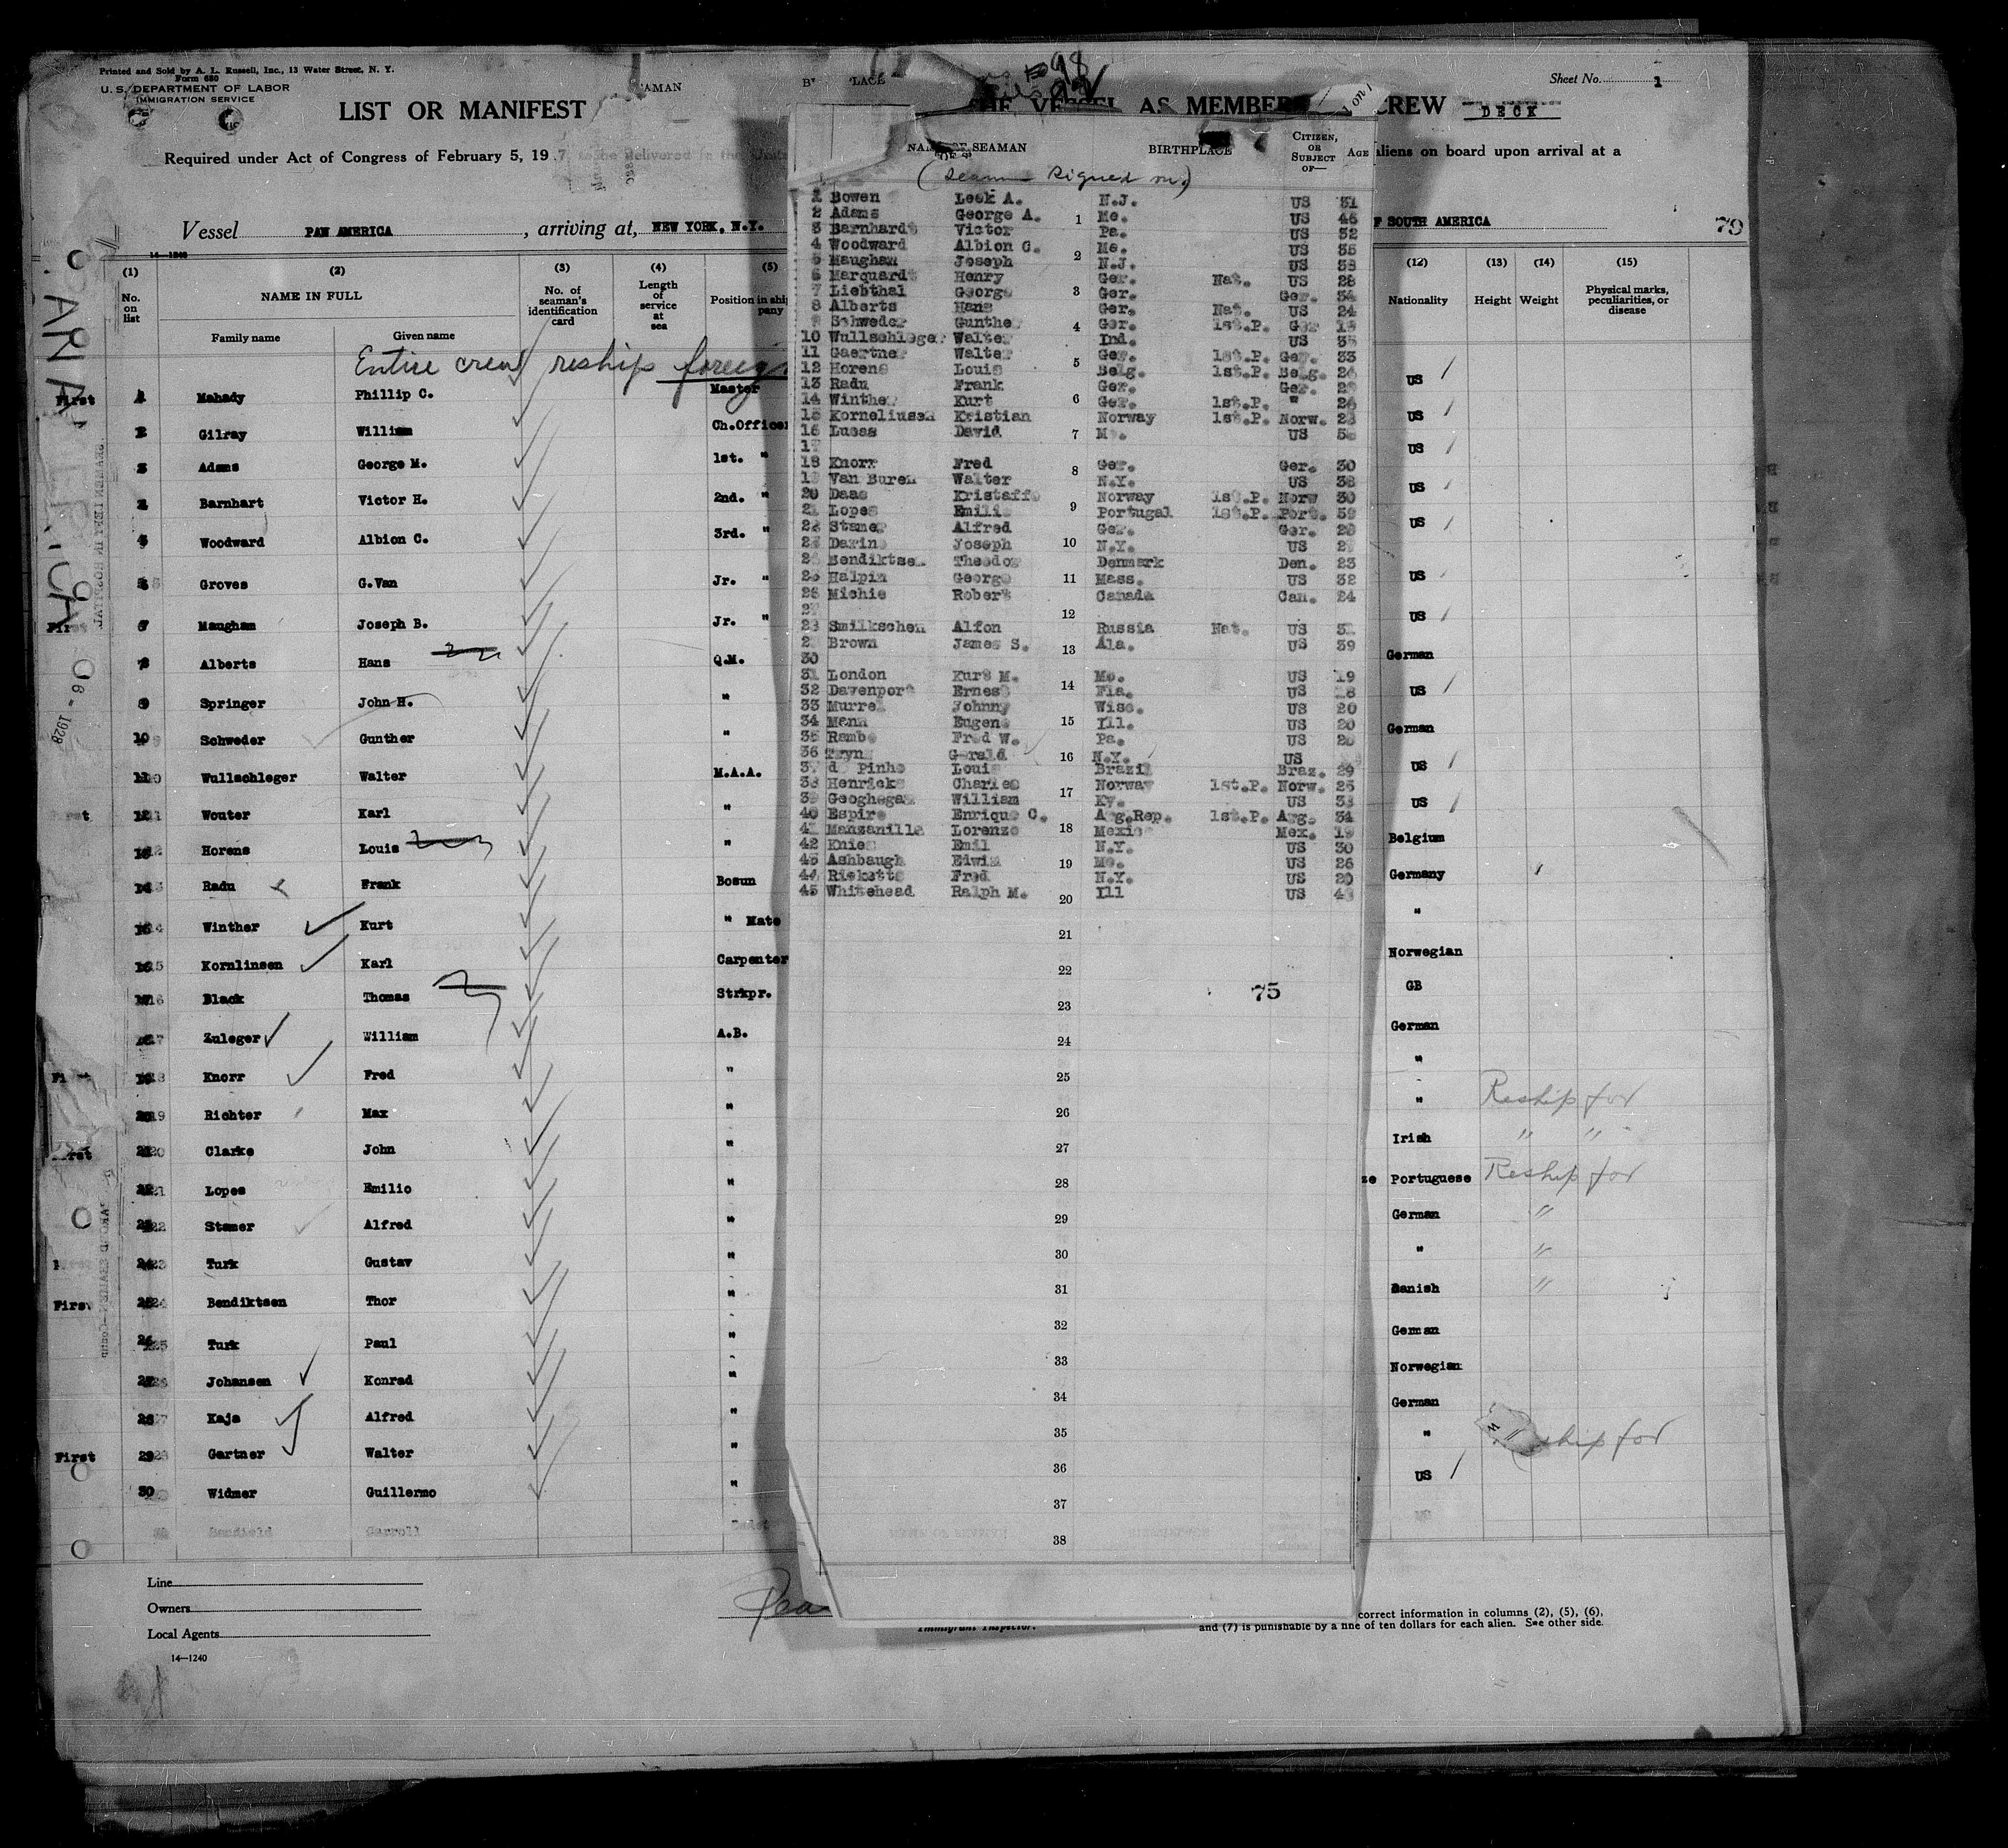 Printed and Sold by A. L. Russell, Inc., 13 Water Street, N. Y.
Form 680
U. S. DEPARTMENT OF LABOR
IMMIGRATION SERVICE
Sheet No. 1
LIST OR MANIFEST
THE VESSEL AS MEMBERS CREW DECK
Required under Act of Congress of February 5, 19 7
aliens on board upon arrival at a
Vessel PAN AMERICA, arriving at, NEW YORK, N.Y.
F SOUTH AMERICA
79
14-1240
(1) (2) (3) (4) (5)
No. on list
NAME IN FULL
Family name Given name
No. of seaman's identification card
Length of service at sea
Position in ship
pany
Entire crew reship foreign
First 1 Mahady Phillip C. Master
2 Gilray William Ch.Officer
3 Adams George M. 1st. "
Barnhart Victor H. 2nd. "
Woodward Albion C. 3rd. "
Groves G.Van Jr. "
First Maughan Joseph B. Jr. "
Alberts Hans Q.M.
9 Springer John H. "
10 Schweder Gunther "
11 Wullschleger Walter M.A.A.
Wouter Karl "
Horens Louis "
Radu Frank Bosun
Winther Kurt " Mate
Kornlinsen Karl Carpenter
Black Thomas Strkpr.
Zuleger William A.B.
Knorr Fred "
Richter Max "
Clarke John "
Lopes Emilio "
Stamer Alfred "
Turk Gustav "
First Bendiktsen Thor "
Turk Paul "
Johansen Konrad "
Kaja Alfred "
First 29 Gartner Walter "
30 Widmer Guillermo "
Benfield Carroll Cadet
Line
Owners
Local Agents
14—1240
NAME OF SEAMAN BIRTHPLACE CITIZEN, OR SUBJECT OF— AGE
(Seamen Signed on)
1 Bowen Leek A. N.J. US 31
2 Adams George A. Me. US 46
3 Barnhardt Victor Pa. US 32
4 Woodward Albion G. Me. US 35
5 Maughan Joseph N.J. US 38
6 Marquardt Henry Ger. Nat. US 28
7 Liebthal George Ger. Ger. 34
8 Alberts Hans Ger. Nat. US 24
9 Schweder Gunther Ger. 1st.P. Ger
10 Wullschleger Walter Ind. US
11 Gaertner Walter Ger. 1st.P. Ger. 33
12 Horens Louis Belg. 1st.P. Belg. 26
13 Radu Frank Ger. Ger.
14 Winther Kurt Ger. 1st.P. " 26
15 Korneliussen Kristian Norway 1st.P. Norw. 23
16 Lucas David US
17
18 Knorr Fred Ger. Ger. 30
19 Van Buren Walter N.Y. US 38
20 Daas Kristaffe Norway 1st.P. Norw 30
21 Lopes Emilio Portugal 1st.P. Port. 39
22 Stamer Alfred Ger. Ger. 20
23 Darine Joseph N.Y. US
24 Bendiktsen Theodor Denmark Den. 23
25 Halpin George Mass. US 32
26 Michie Robert Canada Can. 24
27
28 Smilkschen Alfon Russia Nat. US
29 Brown James S. Ala. US 39
30
31 London Kurt M. Mo. US 19
32 Davenport Ernest Fla. US 18
33 Murrel Johnny Wisc. US 20
34 Mann Eugene Ill. US 20
35 Rambo Fred W. Pa. US 20
36 Gerald N.Y. US
37 d Pinho Louis Brazil Braz. 29
38 Henricks Charles Norway 1st.P. Norw. 25
39 Geoghegan William Ky. US 33
40 Espiro Enrique C. Arg.Rep. 1st.P. Arg. 34
41 Manzanilla Lorenzo Mexico Mex. 19
42 Knies Emil N.Y. US 30
43 Ashbaugh Edwin Mo. US 26
44 Ricketts Fred N.Y. US 20
45 Whitehead Ralph M. Ill US
1
2
3
4
5
6
7
8
9
10
11
12
13
14
15
16
17
18
19
20
21
22
23
24
25
26
27
28
29
30
31
32
33
34
35
36
37
38
75
(12) (13) (14) (15)
Nationality Height Weight Physical marks, peculiarities, or disease
US
US
US
US
US
US
US
German
US
German
US
US
Belgium
Germany
"
Norwegian
GB
German
"
" Reship for
Irish " "
Portuguese Reship for
German "
" "
Danish "
German
Norwegian
German
" ship for
US
Immigrant Inspector.
correct information in columns (2), (5), (6),
and (7) is punishable by a fine of ten dollars for each alien. See other side.